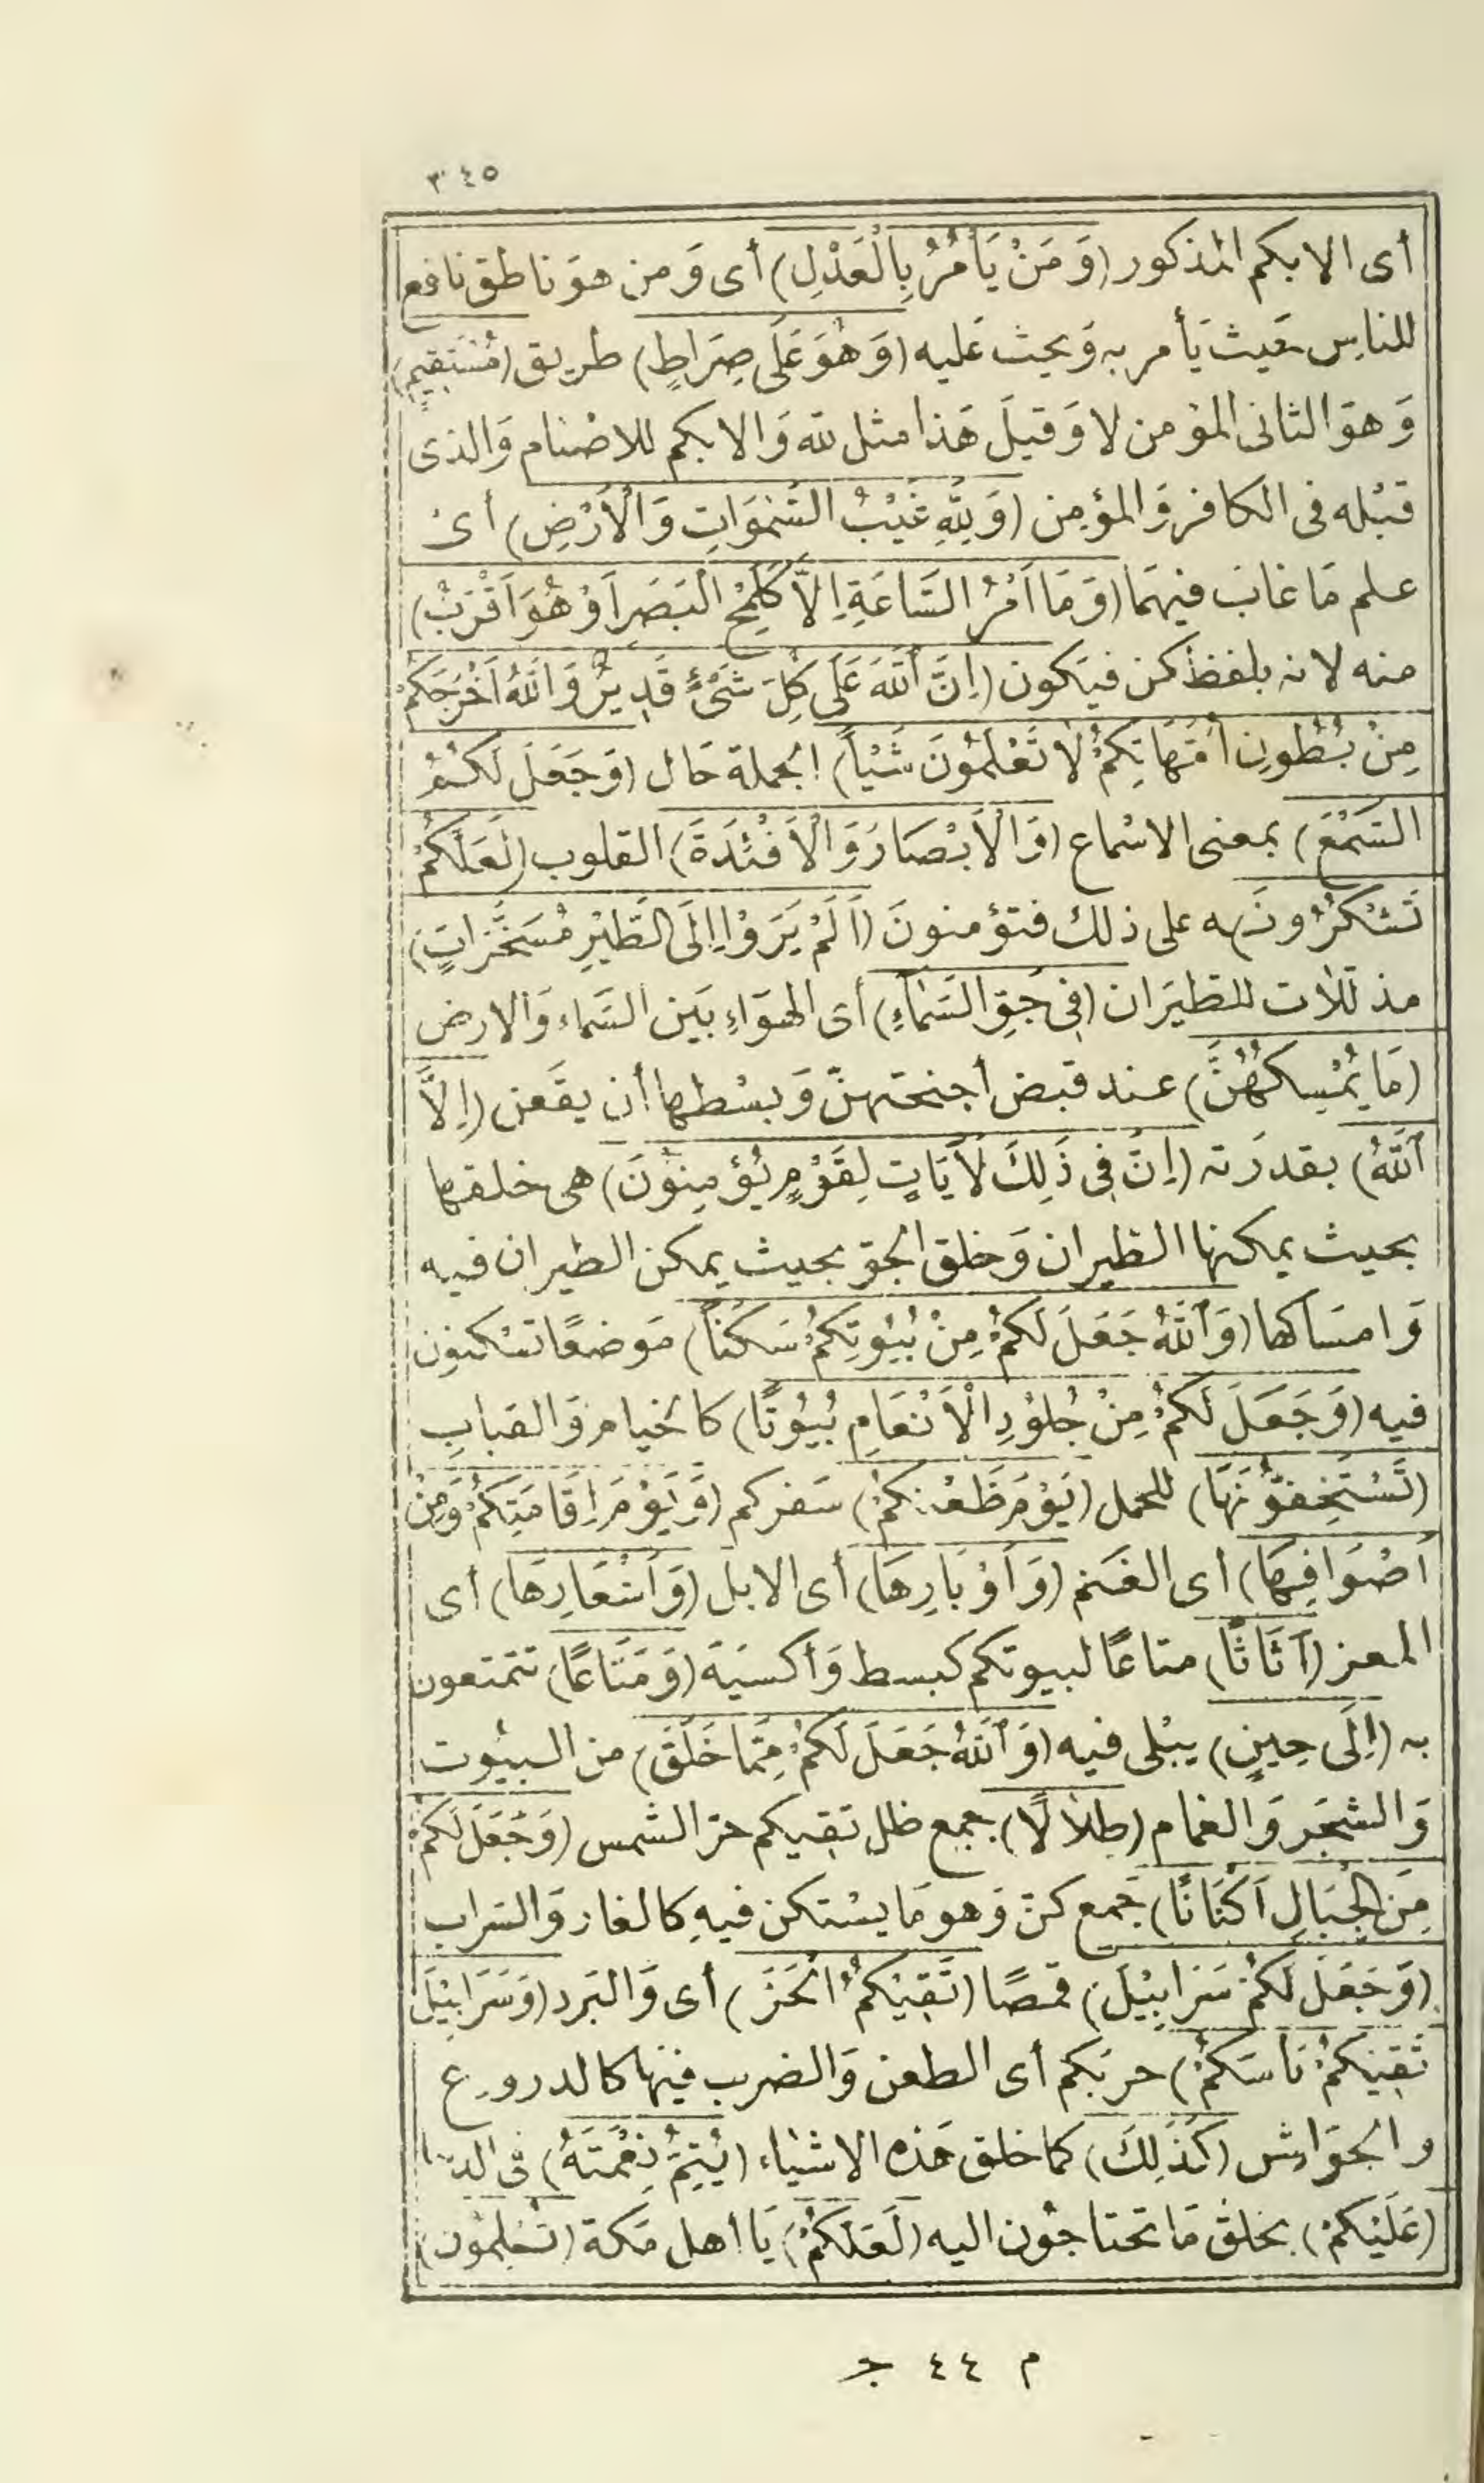 ٣٤٥
أى الابكم المذكور (وَمَنْ يَأْمُرُ بِالْعَدْلِ) أى وَمن هوَ ناطق نافع
للناس حَيث يَأمر به وَيحث عَليه (وَهُوَ عَلَى صِرَاطٍ) طريق (مُسْتَقِيمٍ)
وَهوَ الثانى المؤمن لا وَقيلَ هَذا مثل لله وَالابكم للاصْنام وَالذى
قبْله فى الكافر وَالمؤمن (وَلِلَّهِ غَيْبُ السَّمٰوَاتِ وَالْاَرْضِ) أى
علم مَا غابَ فيهمَا (وَمَا اَمْرُ السَّاعَةِ اِلَّا كَلَمْحِ الْبَصَرِ اَوْ هُوَ اَقْرَبُ)
منه لانه بلفظ كن فيَكون (اِنَّ اللَّهَ عَلَى كُلِّ شَىْءٍ قَدِيرٌ وَاللَّهُ اَخْرَجَكُمْ
مِنْ بُطُونِ اُمَّهَاتِكُمْ لَا تَعْلَمُونَ شَيْأً) الجملة حَال (وَجَعَلَ لَكُمُ
السَّمْعَ) بمعنى الاسْماع (وَالْاَبْصَارَ وَالْاَفْئِدَةَ) القلوب (لَعَلَّكُمْ
تَشْكُرُونَ) ه على ذلك فتؤمنونَ (اَلَمْ يَرَوْا اِلَى الطَّيْرِ مُسَخَّرَاتٍ)
مذللات للطيَران (فِى جَوِّ السَّمَاءِ) أى الهوَاءِ بَين السَّماء وَالارض
(مَا يُمْسِكُهُنَّ) عند قبض أجنحتهنّ وَبسْطها أن يقَعن (اِلَّا
اللَّهُ) بقدرَته (اِنَّ فِى ذَلِكَ لَاَيَاتٍ لِقَوْمٍ يُؤْمِنُونَ) هى خلقها
بحيث يمكنها الطيران وَخلق الجوّ بحيث يمكن الطيران فيه
وَامسَاكها (وَاللَّهُ جَعَلَ لَكُمْ مِنْ بُيُوتِكُمْ سَكَنًا) مَوضعًا تسْكنون
فيه (وَجَعَلَ لَكُمْ مِنْ جُلُودِ الْاَنْعَامِ بُيُوتًا) كالخيام وَالقبابِ
(تَسْتَخِفُّونَهَا) للحمل (يَوْمَ ظَعْنِكُمْ) سَفركم (وَيَوْمَ اِقَامَتِكُمْ وَمِنْ
اَصْوَافِهَا) أى الغَنم (وَاَوْبَارِهَا) أى الابل (وَاَشْعَارِهَا) أى
المعز (اَثَاثًا) متاعًا لبيوتكم كبسط وَأكسيَة (وَمَتَاعًا) تتمتعون
به (اِلَى حِينٍ) يبْلى فيه (وَاللَّهُ جَعَلَ لَكُمْ مِمَّا خَلَقَ) من البيُوت
وَالشجَر وَالغمام (ظِلَالًا) جمع ظل تقيكم حرّ الشمس (وَجَعَلَ لَكُمْ
مِنَ الْجِبَالِ اَكْنَانًا) جَمع كنّ وَهو مَا يسْتكن فيهِ كالغار وَالسَراب
(وَجَعَلَ لَكُمْ سَرَابِيْلَ) قمصًا (تَقِيْكُمُ الْحَرَّ) أى وَالبَرد (وَسَرَابِيْلَ
تَقِيْكُمْ بَاْسَكُمْ) حربَكم أى الطعن وَالضرب فيْها كالدروع
والجوَاشن (كَذَلِكَ) كما خلق هَذه الاشيَاء (يُتِمُّ نِعْمَتَهُ) فى الدنيا
(عَلَيْكُمْ) بخلق مَا تحتاجُون اليه (لَعَلَّكُمْ) يَا أهل مَكة (تُسْلِمُونَ)
م ٤٤ ج